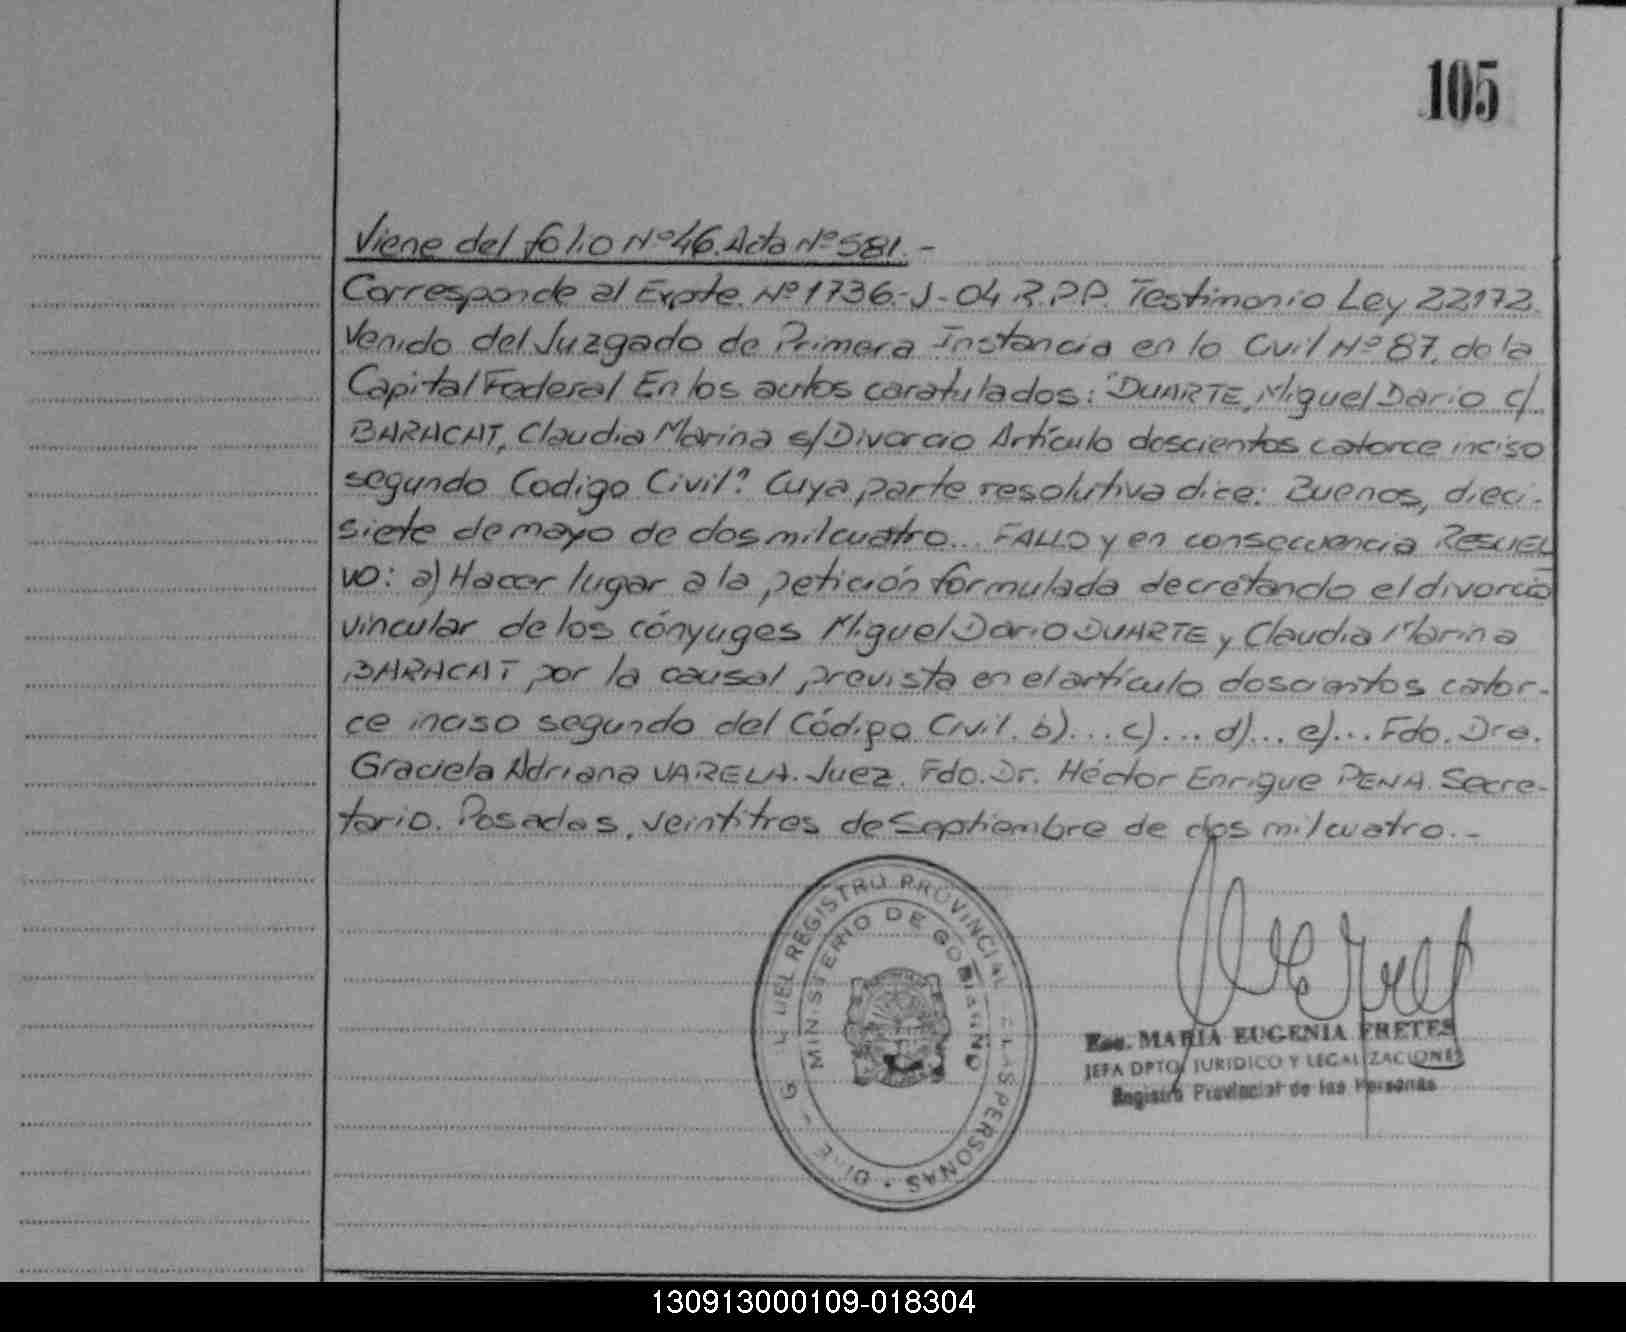 105
Viene del folio Nº 46. Acta Nº 581.-
Corresponde al Expte. Nº 1736.-J-04 R.P.P. Testimonio Ley 22172.
Venido del Juzgado de Primera Instancia en lo Civil Nº 87. de la
Capital Federal En los autos caratulados: "DUARTE, Miguel Dario c/
BARACAT, Claudia Marina s/Divorcio Artículo doscientos catorce inciso
segundo Codigo Civil". Cuya parte resolutiva dice: Buenos, dieci-
siete de mayo de dos mil cuatro... FALLO y en consecuencia RESUEL
VO: a) Hacer lugar a la petición formulada decretando el divorcio
vincular de los cónyuges Miguel Dario DUARTE y Claudia Marina
BARACAT por la causal prevista en el artículo doscientos cator-
ce inciso segundo del Código Civil. b)... c)... d)... e)... Fdo. Dra.
Graciela Adriana VARELA. Juez. Fdo. Dr. Héctor Enrique PENA. Secre-
tario. Posadas, veintitres de Septiembre de dos mil cuatro.-
DEL REGISTRO PROVINCIAL DE LAS PERSONAS
MINISTERIO DE GOBIERNO
Esc. MARIA EUGENIA FRETES
JEFA DPTO. JURIDICO Y LEGALIZACIONES
Registro Provincial de las Personas
130913000109-018304